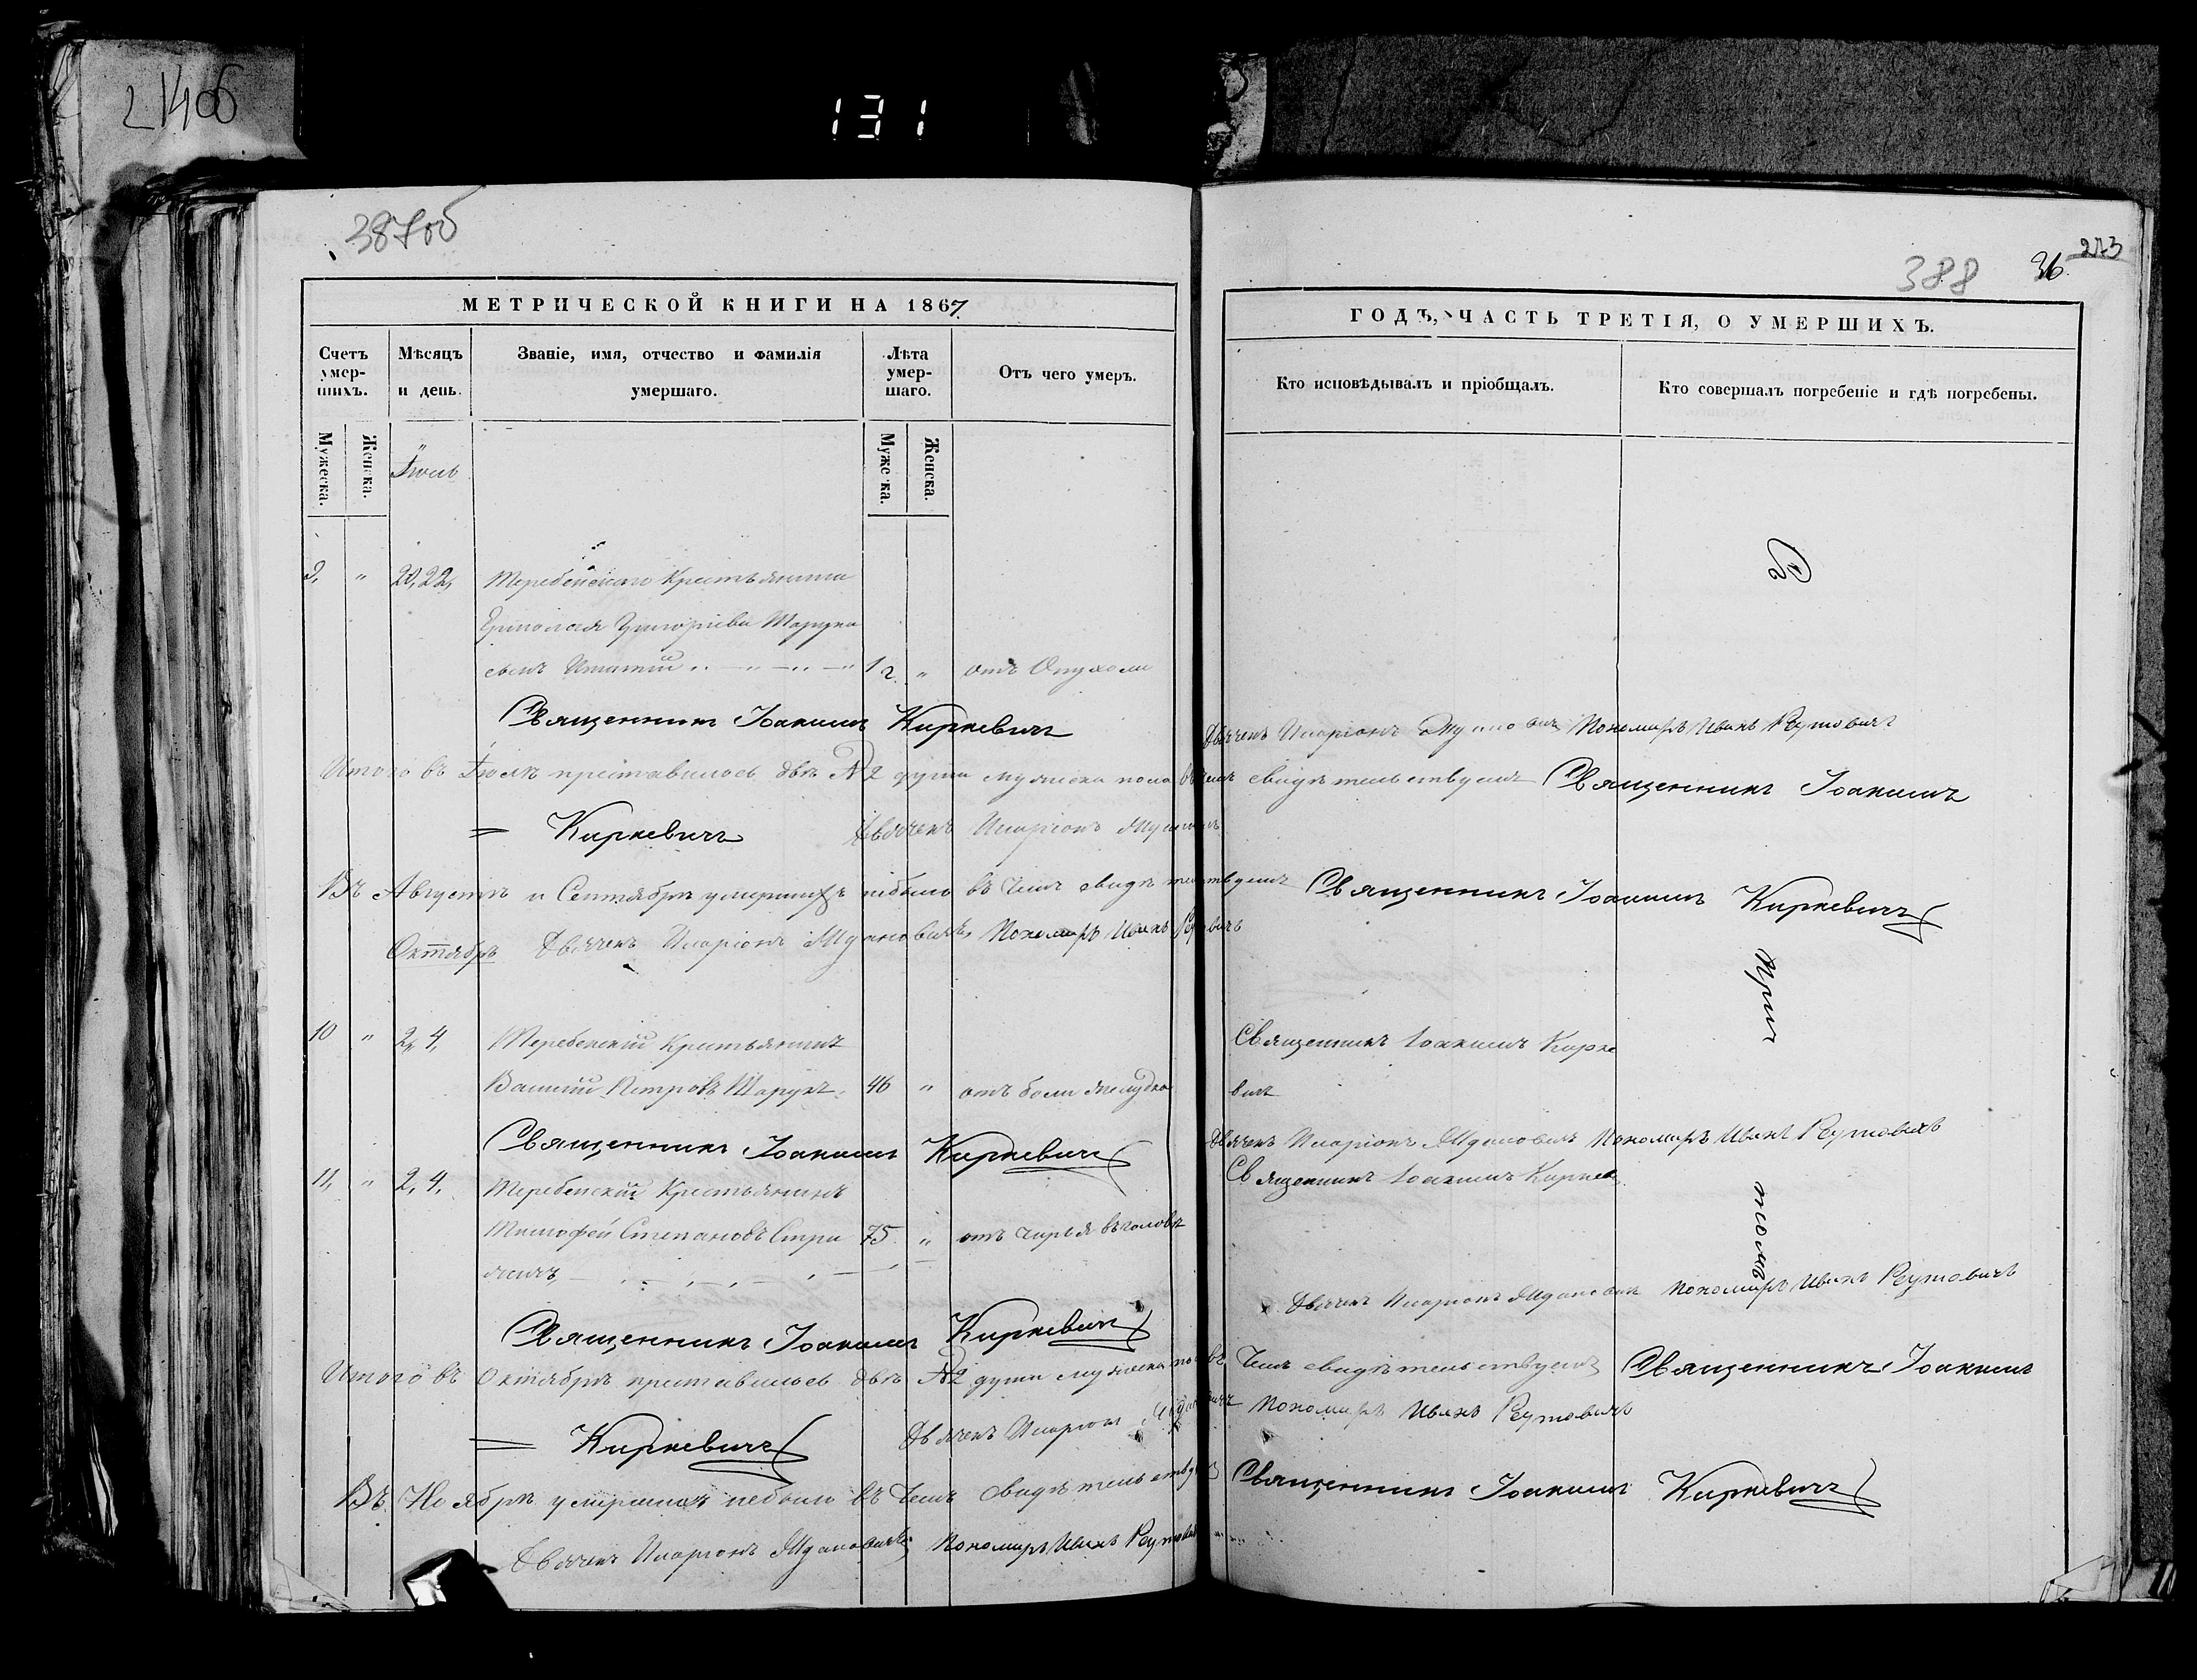 131
387об
388
36.
273
МЕТРИЧЕСКОЙ КНИГИ НА 1867
ГОДЪ, ЧАСТЬ ТРЕТІЯ, О УМЕРШИХЪ.
Счетъ умер-шихъ.
Мѣсяцъ и день.
Званіе, имя, отчество и фамилія умершаго.
Лѣта умер-шаго.
Отъ чего умеръ.
Кто исповѣдывалъ и пріобщалъ.
Кто совершалъ погребеніе и гдѣ погребены.
Мужеска.
Женска.
Мужеска.
Женска.
Іюль
9, " 20, 22, Теребенскаго Крестьянина
Ермолая Григоріева Шарука
сынъ Игнатій 1 г. " отъ Опухоли
Священникъ Іоакимъ Киркевичъ
Дьячекъ Иларіонъ Ждановичъ Пономарь Иванъ Реутовичъ
Итого въ Іюлѣ преставилось двѣ № 2 души мужеска пола въ чемъ свидѣтельствуемъ Священникъ Іоакимъ
= Киркевичъ Дьячекъ Иларіонъ
Въ Августѣ и Сентябрѣ умершихъ небыло въ чемъ свидѣтельствуемъ Священникъ Іоакимъ Киркевичъ
Дьячекъ Иларіонъ Ждановичъ, Пономарь Иванъ Реутовичъ
Октябрь
10 " 2, 4, Теребенскій Крестьянинъ Священникъ Іоакимъ Кирке
Василій Петровъ Шарукъ. 46 " отъ боли желудка вичъ
Священникъ Іоакимъ Киркевичъ
Дьячекъ Иларіонъ Ждановичъ Пономарь Иванъ Реутовичъ
11, " 2, 4, Теребенскій Крестьянинъ Священникъ Іоакимъ Киркев
Тимофей Степановъ Стри 75 " отъ чирья въ головѣ
жичъ
Дьячекъ Иларіонъ Ждановичъ Пономарь Иванъ Реутовичъ
Священникъ Іоакимъ Киркевичъ
Итого въ Октябрѣ преставилось двѣ № 2 души мужеска пола въ Чемъ свидѣтельствуемъ Священникъ Іоакимъ
= Киркевичъ Дьячекъ Иларіонъ Ждановичъ Пономарь Иванъ Реутовичъ
Въ Ноябрѣ умершихъ небыло въ Чемъ свидѣтельствуемъ Священникъ Іоакимъ Киркевичъ
Дьячекъ Иларіонъ Ждановичъ Пономарь Иванъ Реутовичъ
Съ
Прич
томъ